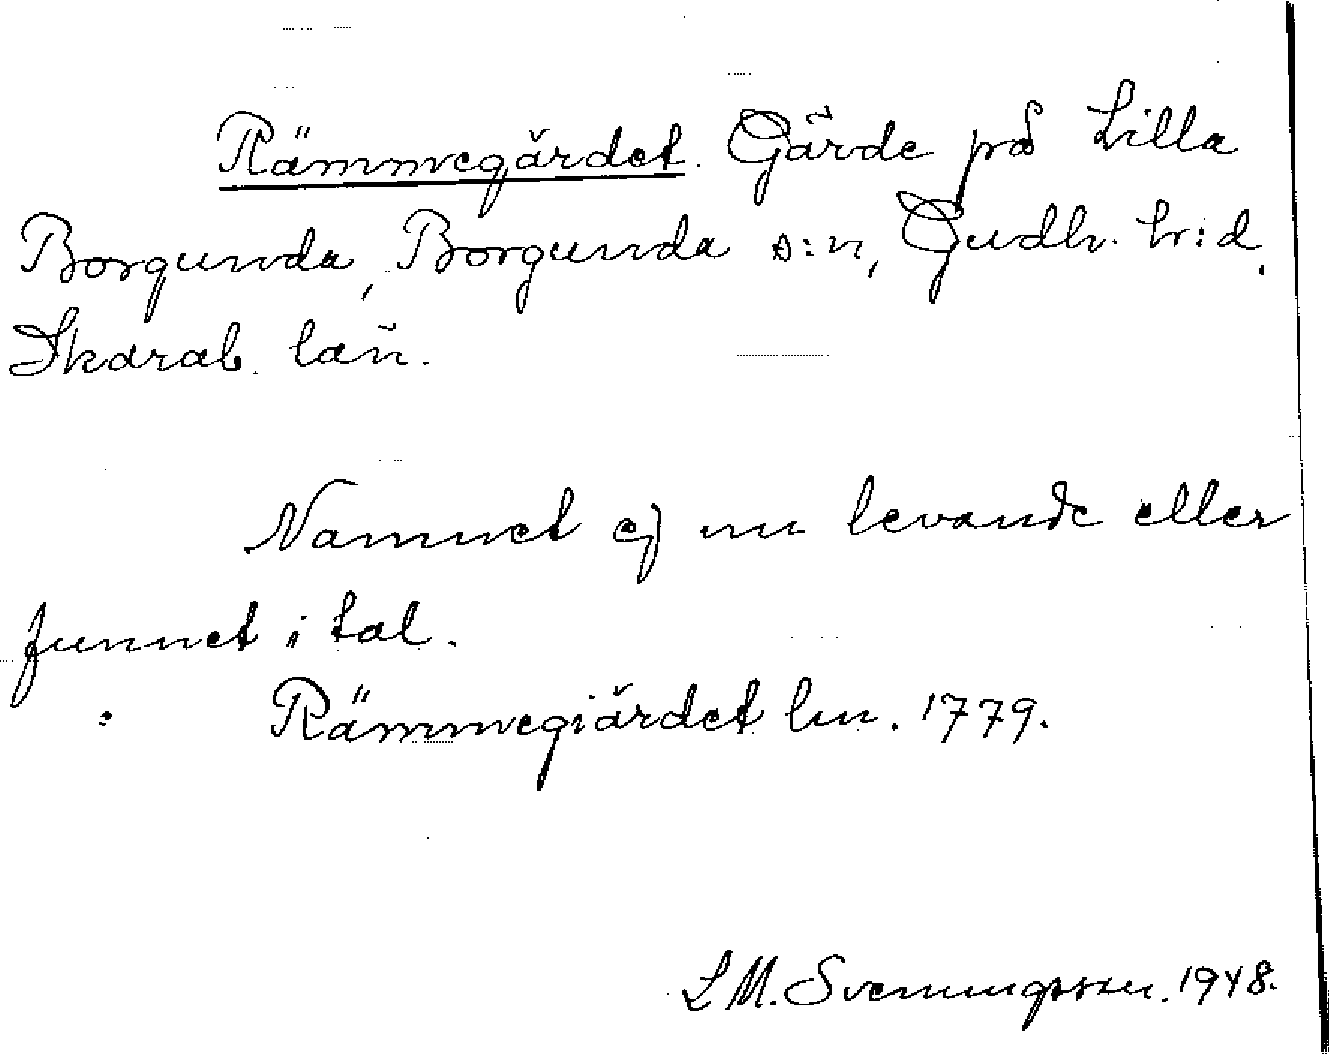 Rämnegärdet. Gärde på Lilla
Borgunda, Borgunda s:n, Gudh. hr:d,
Skarab. län.
Namnet ej nu levande eller
funnet i tal.
Rämnegiärdet lm. 1779.
L M. Svenungsson. 1948.